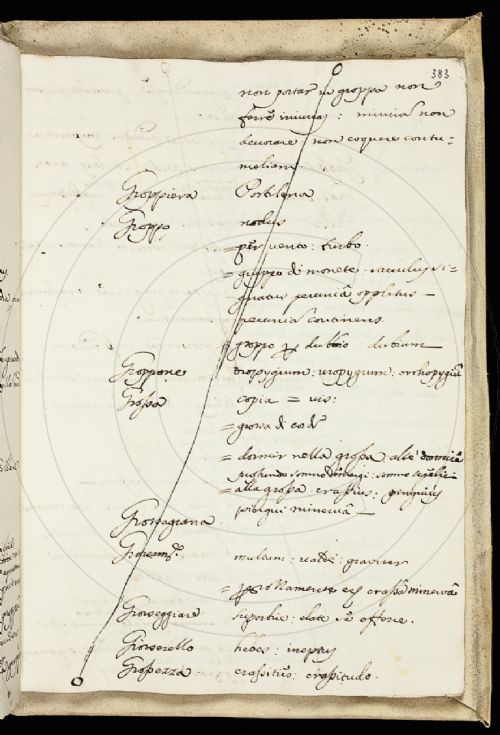 383
non portar in groppa non
ferre iniurias: iniurias non
deuorare: non coquere contu-
meliam
Groppiera Postilena
Groppo nodus
= per vento: turbo.
= gruppo di monete: sacculus si-
gnatus pecuniâ oppletus
pecunias continens
groppo per dubbio: dubium
Groppone uropygium: orrhopygiũ
Grossa copia = vis:
= grossa di
= dormir nella grossa
profundo somno somno
= alla grossa crassius: pinguius
pingui minervâ
Grossagrana
Grossam.te multum: valde: graviter
= crassâ minervâ
Grosseggiare superbire: elate se efferre.
Grosserello hebes: ineptus
Grossezza crassities: crassitudo.